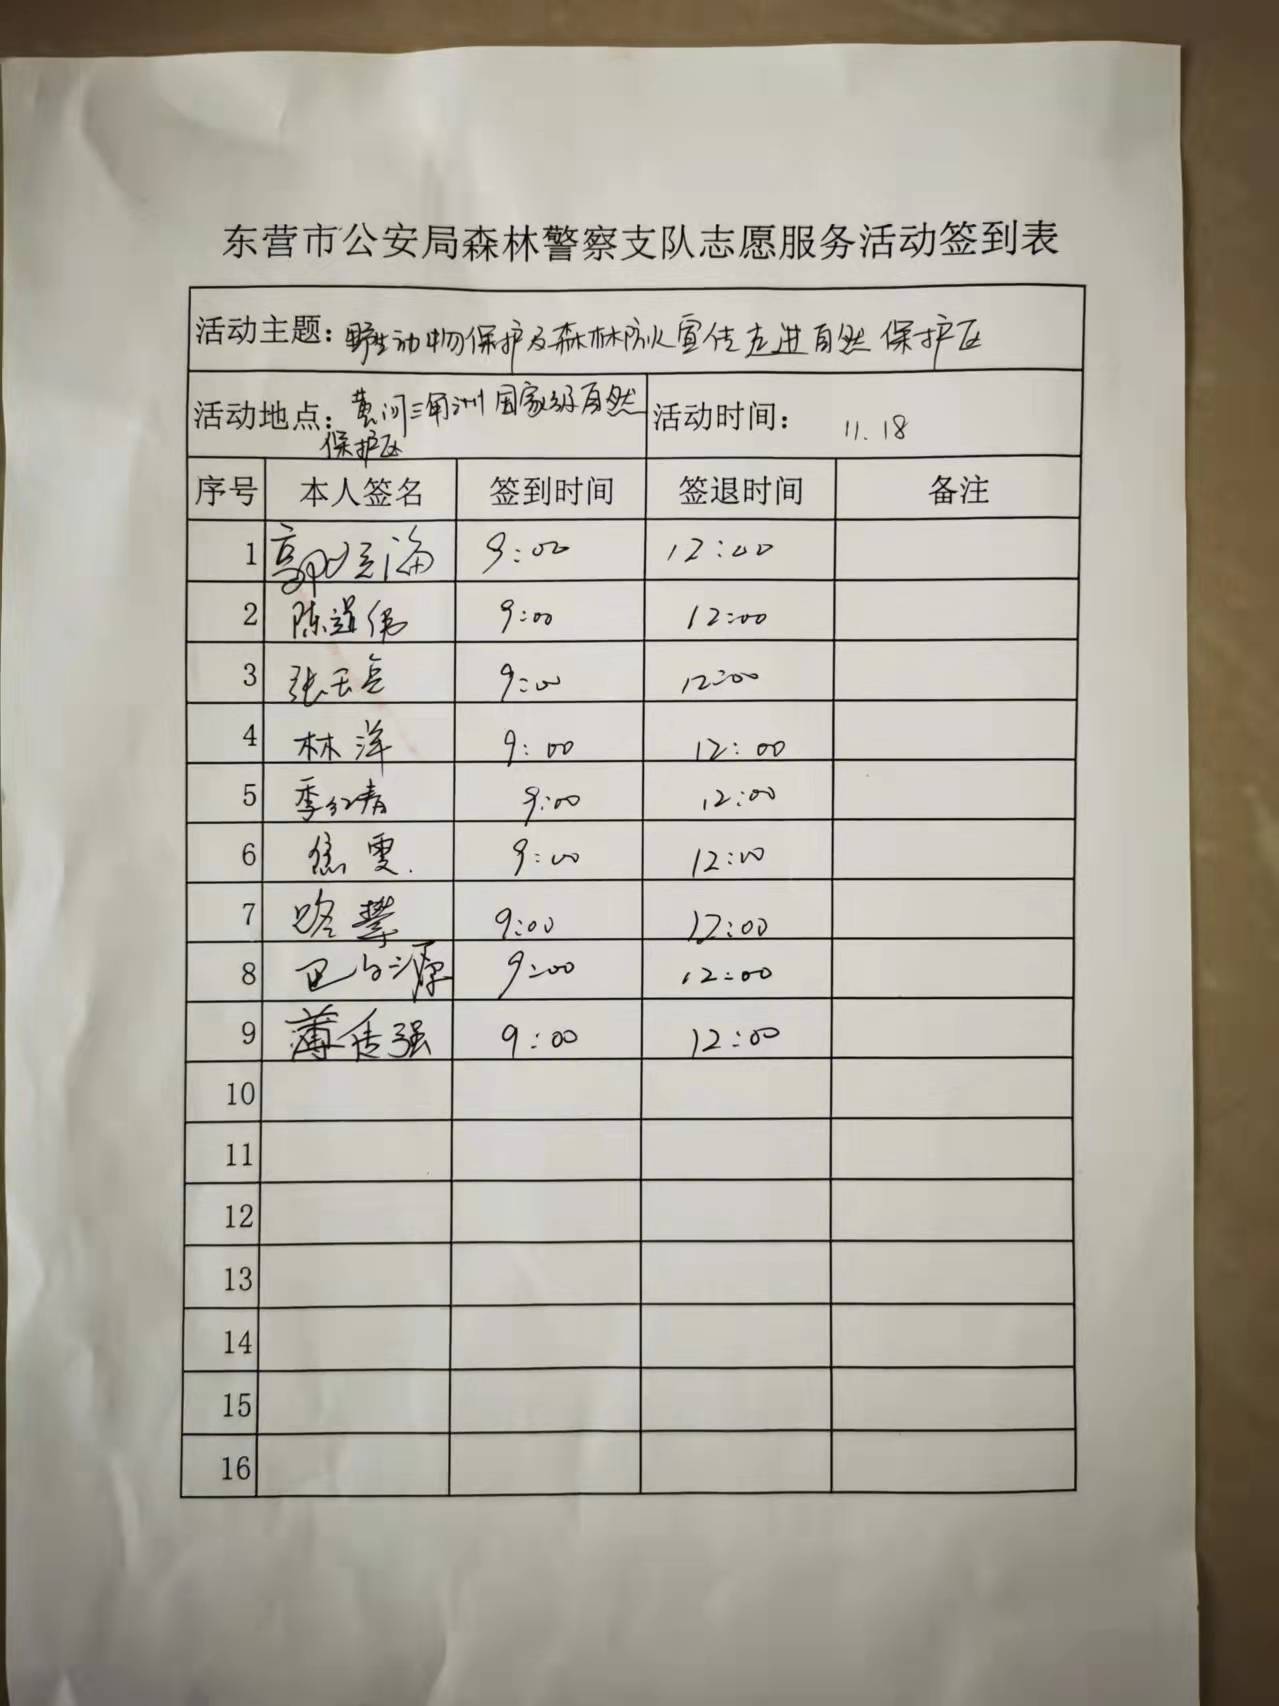 东营市公安局森林警察支队志愿服务活动签到表
活动主题：野生动物保护及森林防火宣传走进自然保护区
活动地点：黄河三角洲国家级自然
保护区
活动时间： 11.18
序号 本人签名 签到时间 签退时间 备注
1 9:00 12:00
2 陈道伟 9:00 12:00
3 9:00 12:00
4 林洋 9:00 12:00
5 季红青 9:00 12:00
6 焦雯 9:00 12:00
7 9:00 12:00
8 9:00 12:00
9 薄传强 9:00 12:00
10
11
12
13
14
15
16